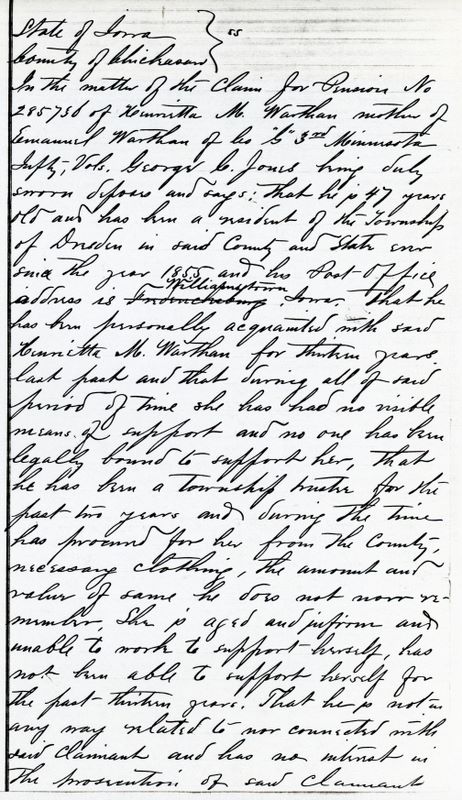 State of Iowa } ss
County of Chickasaw
In the matter of the Claim for Pension No
285736 of Henrietta M. Warthan mother of
Emanuel Warthan of Co "G" 3rd Minnesota
Infty, Vols. George C. Jones being duly
sworn deposes and says: That he is 47 years
old and has been a resident of the Township
of Dresden in said County and State ever
since the year 1855 and his Post Office
Williamstown
address is Iowa. That he
has been personally acquainted with said
Henrietta M. Warthan for thirteen years
last past and that during all of said
period of time she has had no visible
means of support and no one has been
legally bound to support her, That
he has been a township trustee for the
past two years and during the time
has procured for her from the County,
necessary clothing, the amount and
value of same he does not now re-
member, She is aged and infirm and
unable to work to support herself, has
not been able to support herself for
the past thirteen years. That he is not in
any way related to nor connected with
said claimant and has no interest in
the prosecution of said Claimant